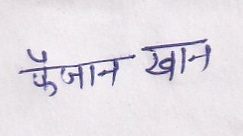 फैजान खान